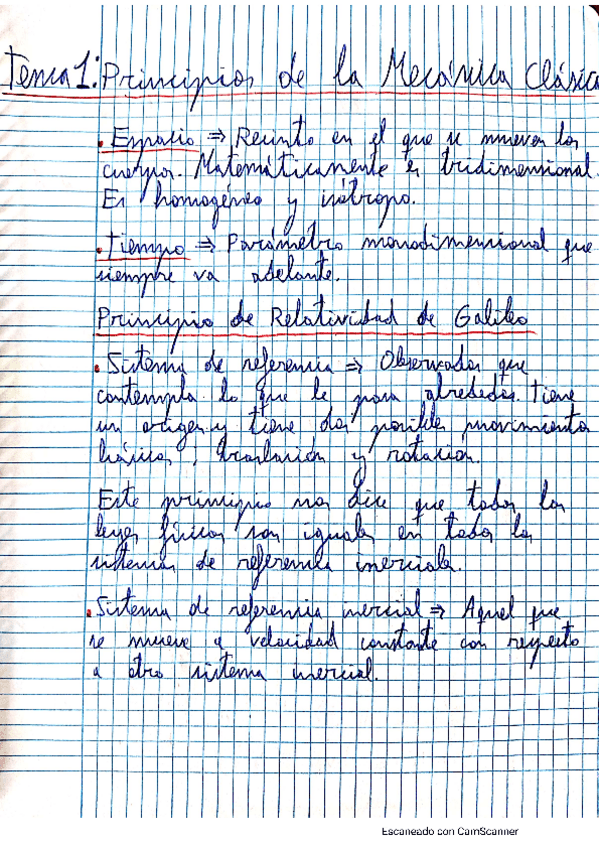 Tema 1: Principios de la Mecánica Clásica
• Espacio ⇒ Recinto en el que se mueven los
cuerpos. Matemáticamente es tridimensional.
Es homogéneo y isótropo.
• Tiempo ⇒ Parámetro monodimensional que
siempre va adelante.
Principio de Relatividad de Galileo
• Sistema de referencia ⇒ Observador que
contempla lo que le pasa alrededor. Tiene
un origen y tiene dos posibles movimientos
básicos, traslación y rotación.
Este principio nos dice que todas las
leyes físicas son iguales en todos los
sistemas de referencia inerciales.
• Sistema de referencia inercial ⇒ Aquel que
se mueve a velocidad constante con respecto
a otro sistema inercial.
Escaneado con CamScanner